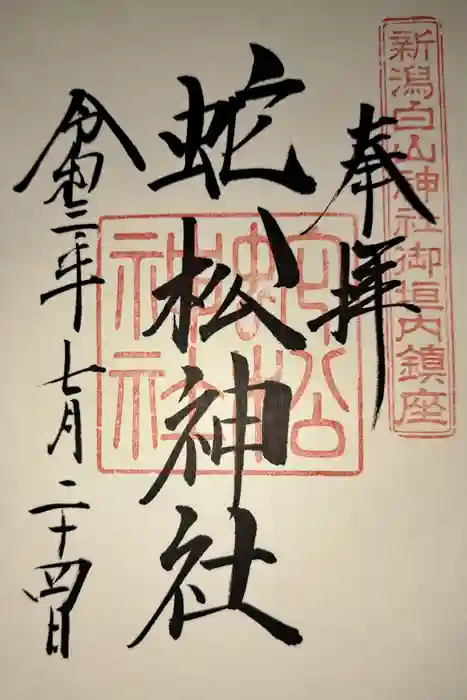 新潟白山神社御垣内鎮座
奉拝
蛇松神社
蛇松神社
令和三年七月二十四日